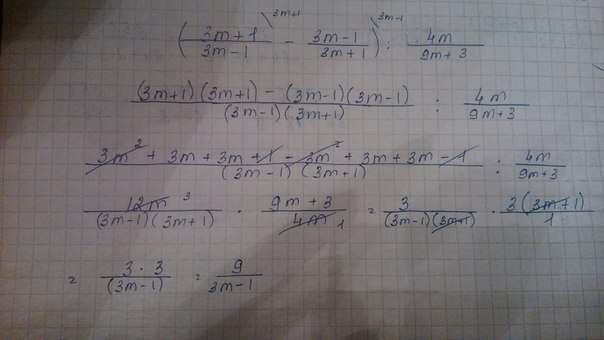 (3m+1/3m-1 \3m+1 - 3m-1/3m+1 \3m-1) : 4m/9m+3
(3m+1)(3m+1) - (3m-1)(3m-1)/(3m-1)(3m+1) : 4m/9m+3
3m² + 3m + 3m + 1 - 3m² + 3m + 3m - 1/(3m-1)(3m+1) : 4m/9m+3
12m 3/(3m-1)(3m+1) · 9m+3/4m 1 = 3/(3m-1)(3m+1) · 3(3m+1)/1
= 3·3/(3m-1) = 9/3m-1